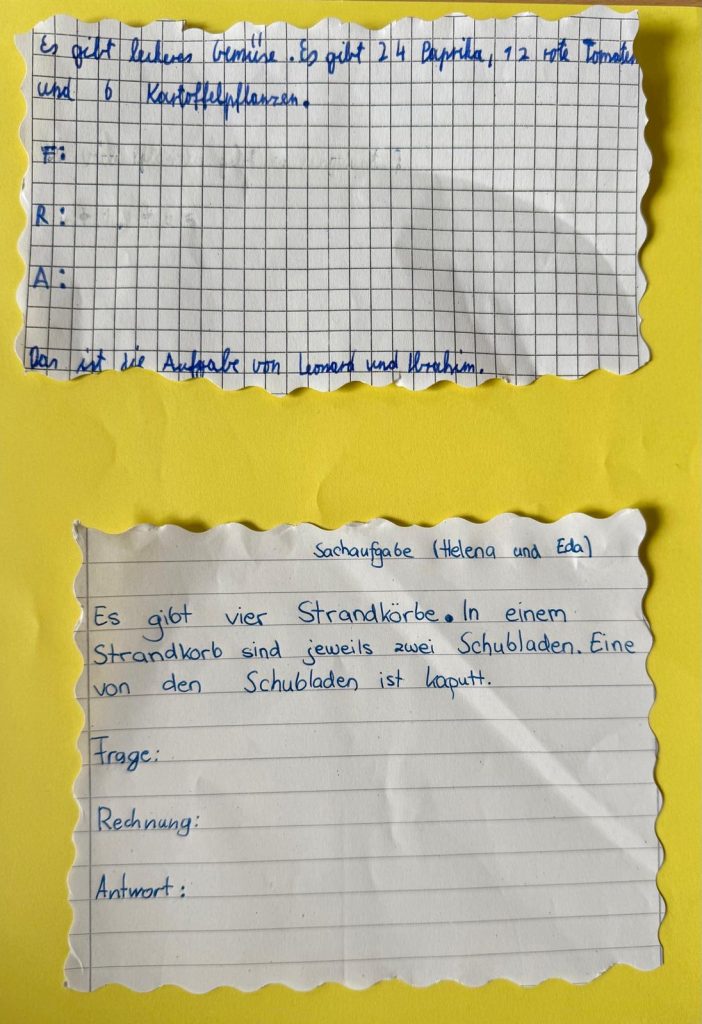 Es gibt leckeres Gemüse. Es gibt 24 Paprika, 12 rote Tomaten
und 6 Kartoffelpflanzen.
F:
R:
A:
Das ist die Aufgabe von Leonard und Ibrahim.
Sachaufgabe (Helena und Eda)
Es gibt vier Strandkörbe. In einem
Strandkorb sind jeweils zwei Schubladen. Eine
von den Schubladen ist kaputt.
Frage:
Rechnung:
Antwort: